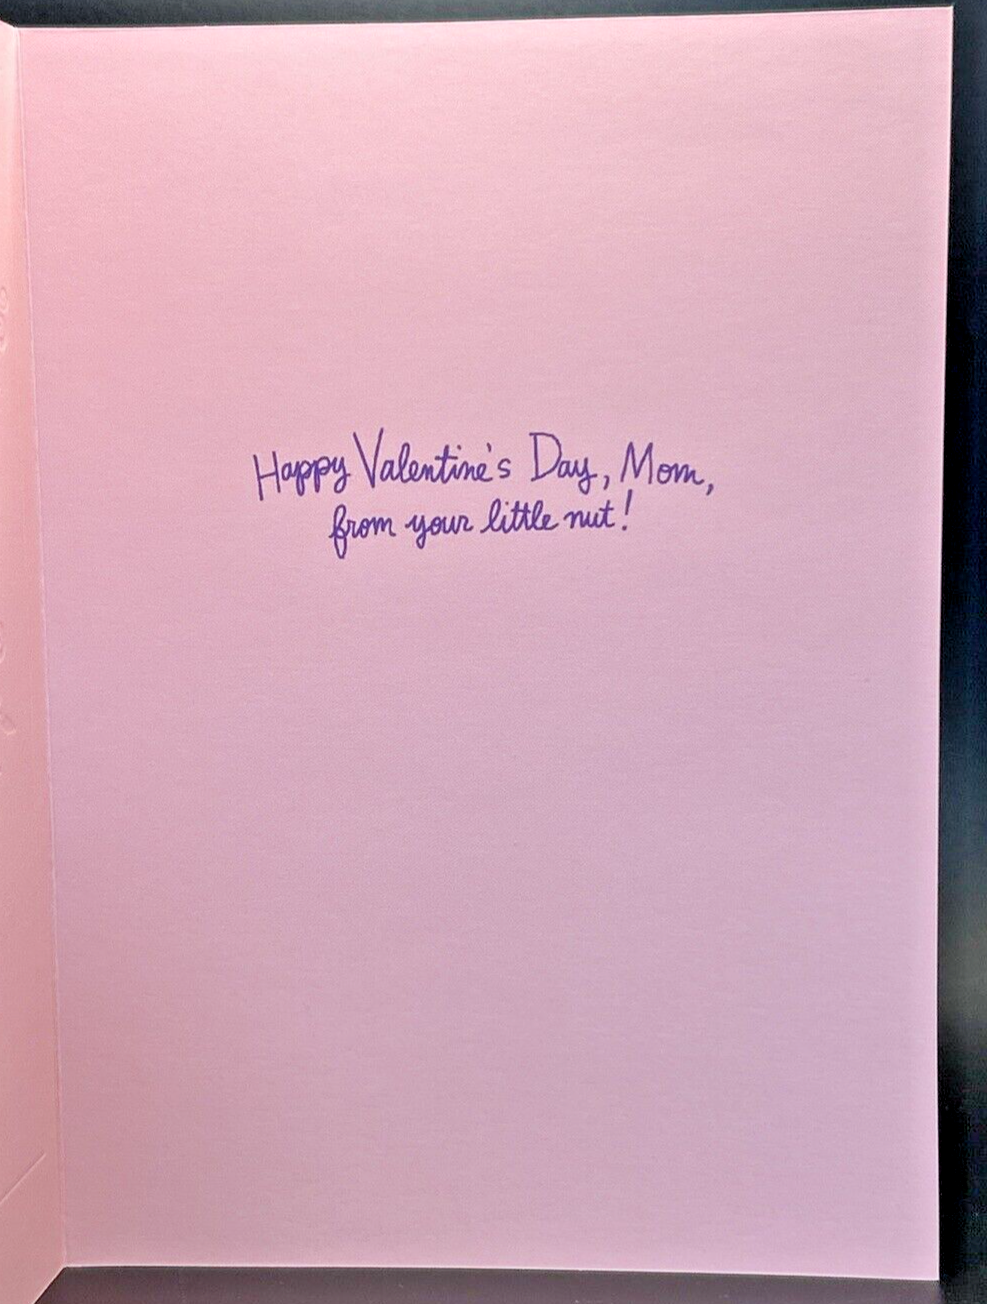 Happy Valentine's Day, Mom,
from your little nut!